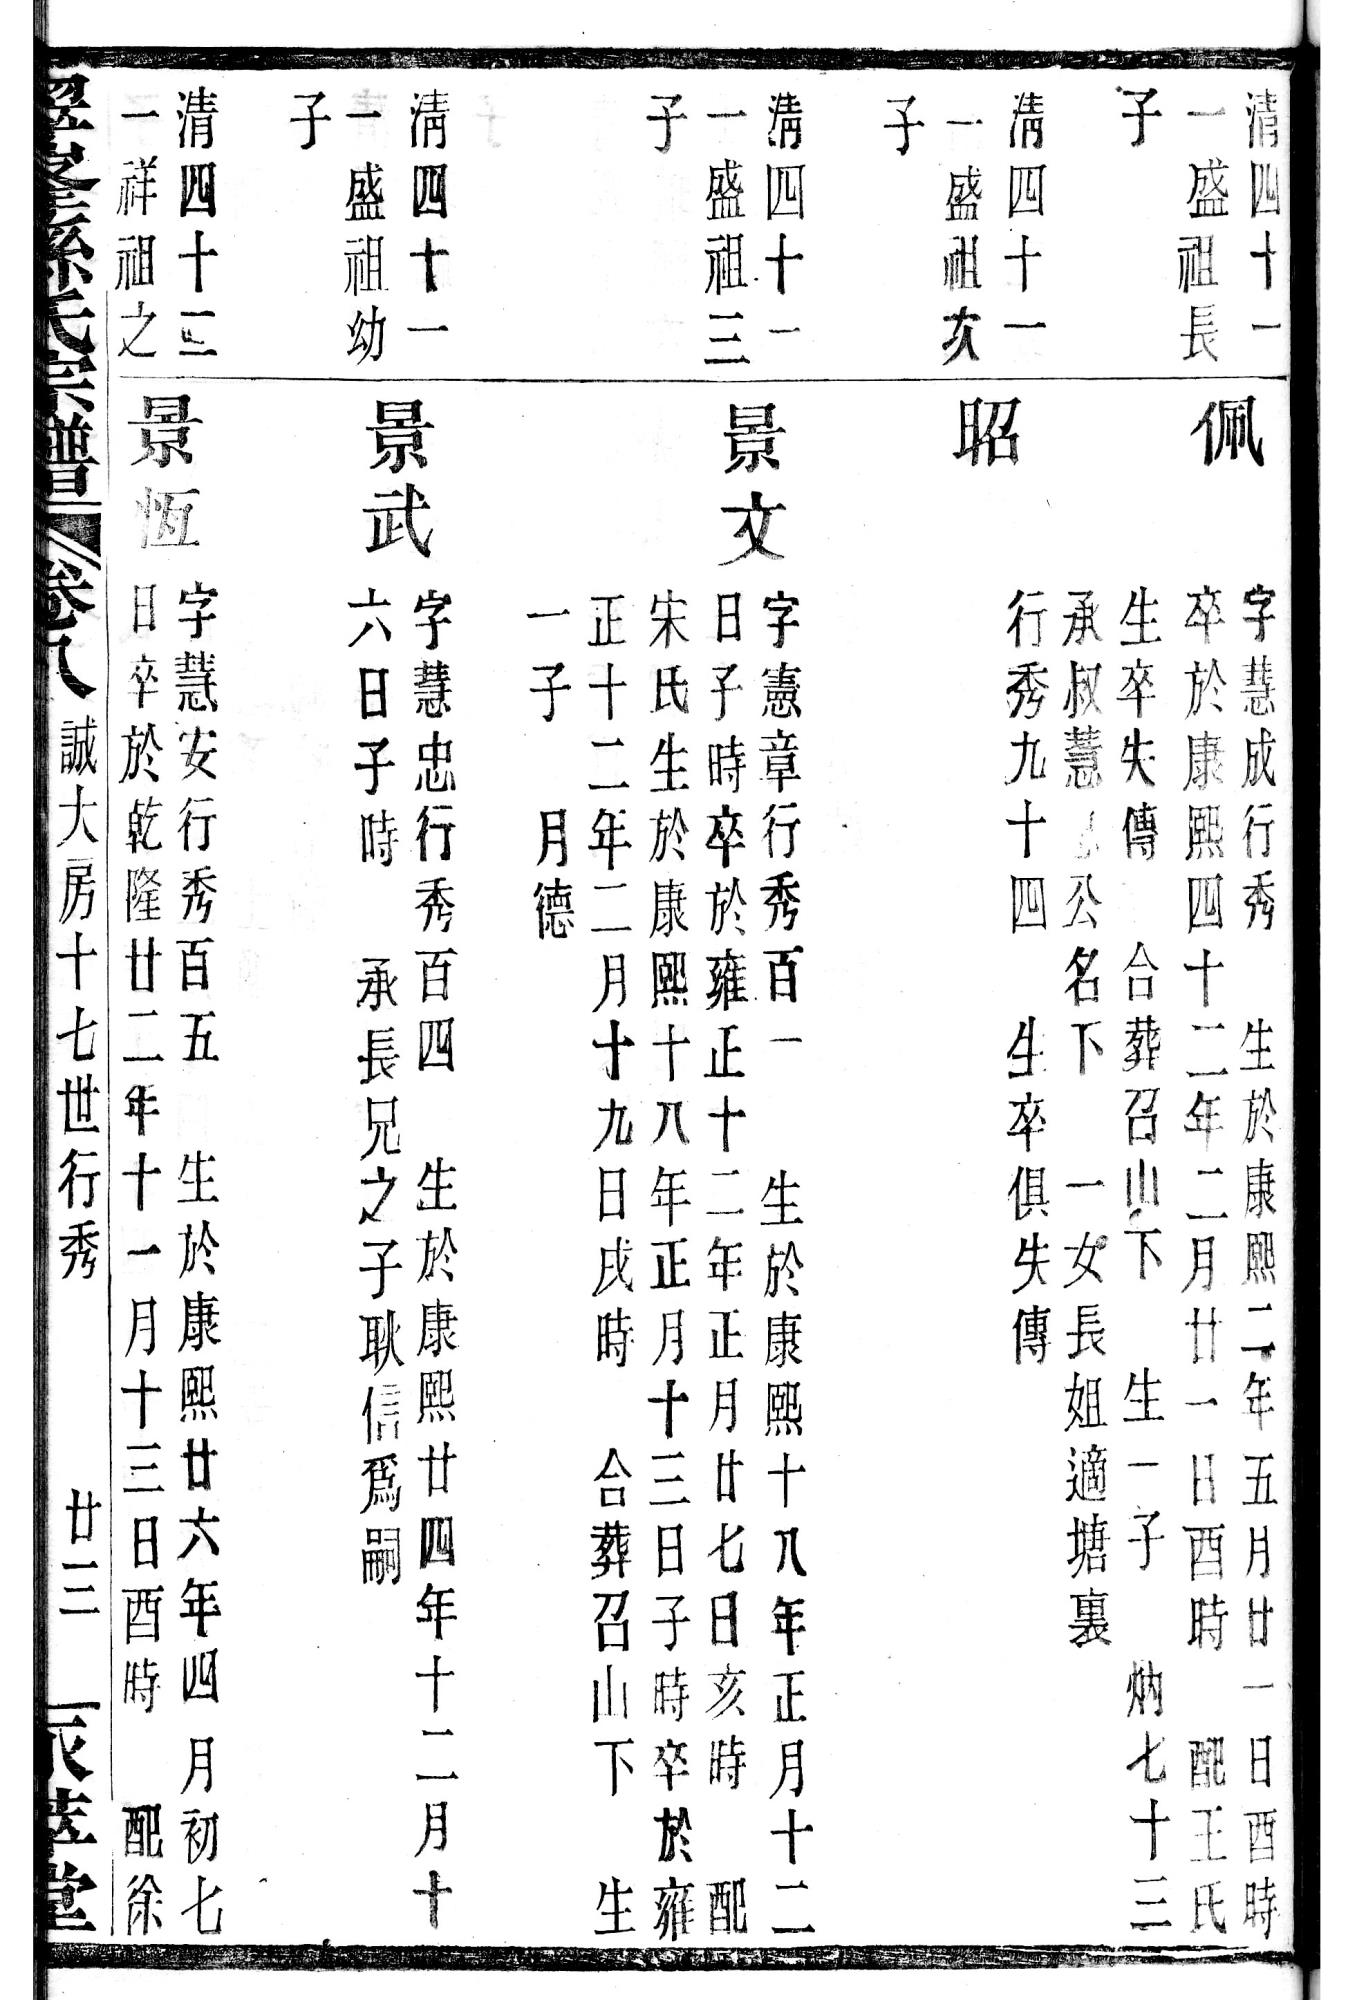 清四十一
一盛祖長
子
佩
字慧成行秀 生於康熙二年五月廿一日酉時
卒於康熙四十二年二月廿一日酉時 配王氏
生卒失傳 合葬召山下 生一子 炳七十三
承叔慧公名下 一女長姐適塘裏
清四十一
一盛祖次
子
昭
行秀九十四 生卒俱失傳
清四十一
一盛祖三
子
景文
字憲章行秀百一 生於康熙十八年正月十二
日子時卒於雍正十二年正月廿七日亥時 配
宋氏生於康熙十八年正月十三日子時卒於雍
正十二年二月十九日戌時 合葬召山下 生
一子 月德
清四十一
一盛祖幼
子
景武
字慧忠行秀百四 生於康熙廿四年十二月十
六日子時 承長兄之子耿信爲嗣
清四十三
一祥祖之
景恆
字慧安行秀百五 生於康熙廿六年四月初七
日卒於乾隆廿二年十一月十三日酉時 配徐
孫氏宗譜 卷八 誠大房十七世行秀 廿三 萃堂